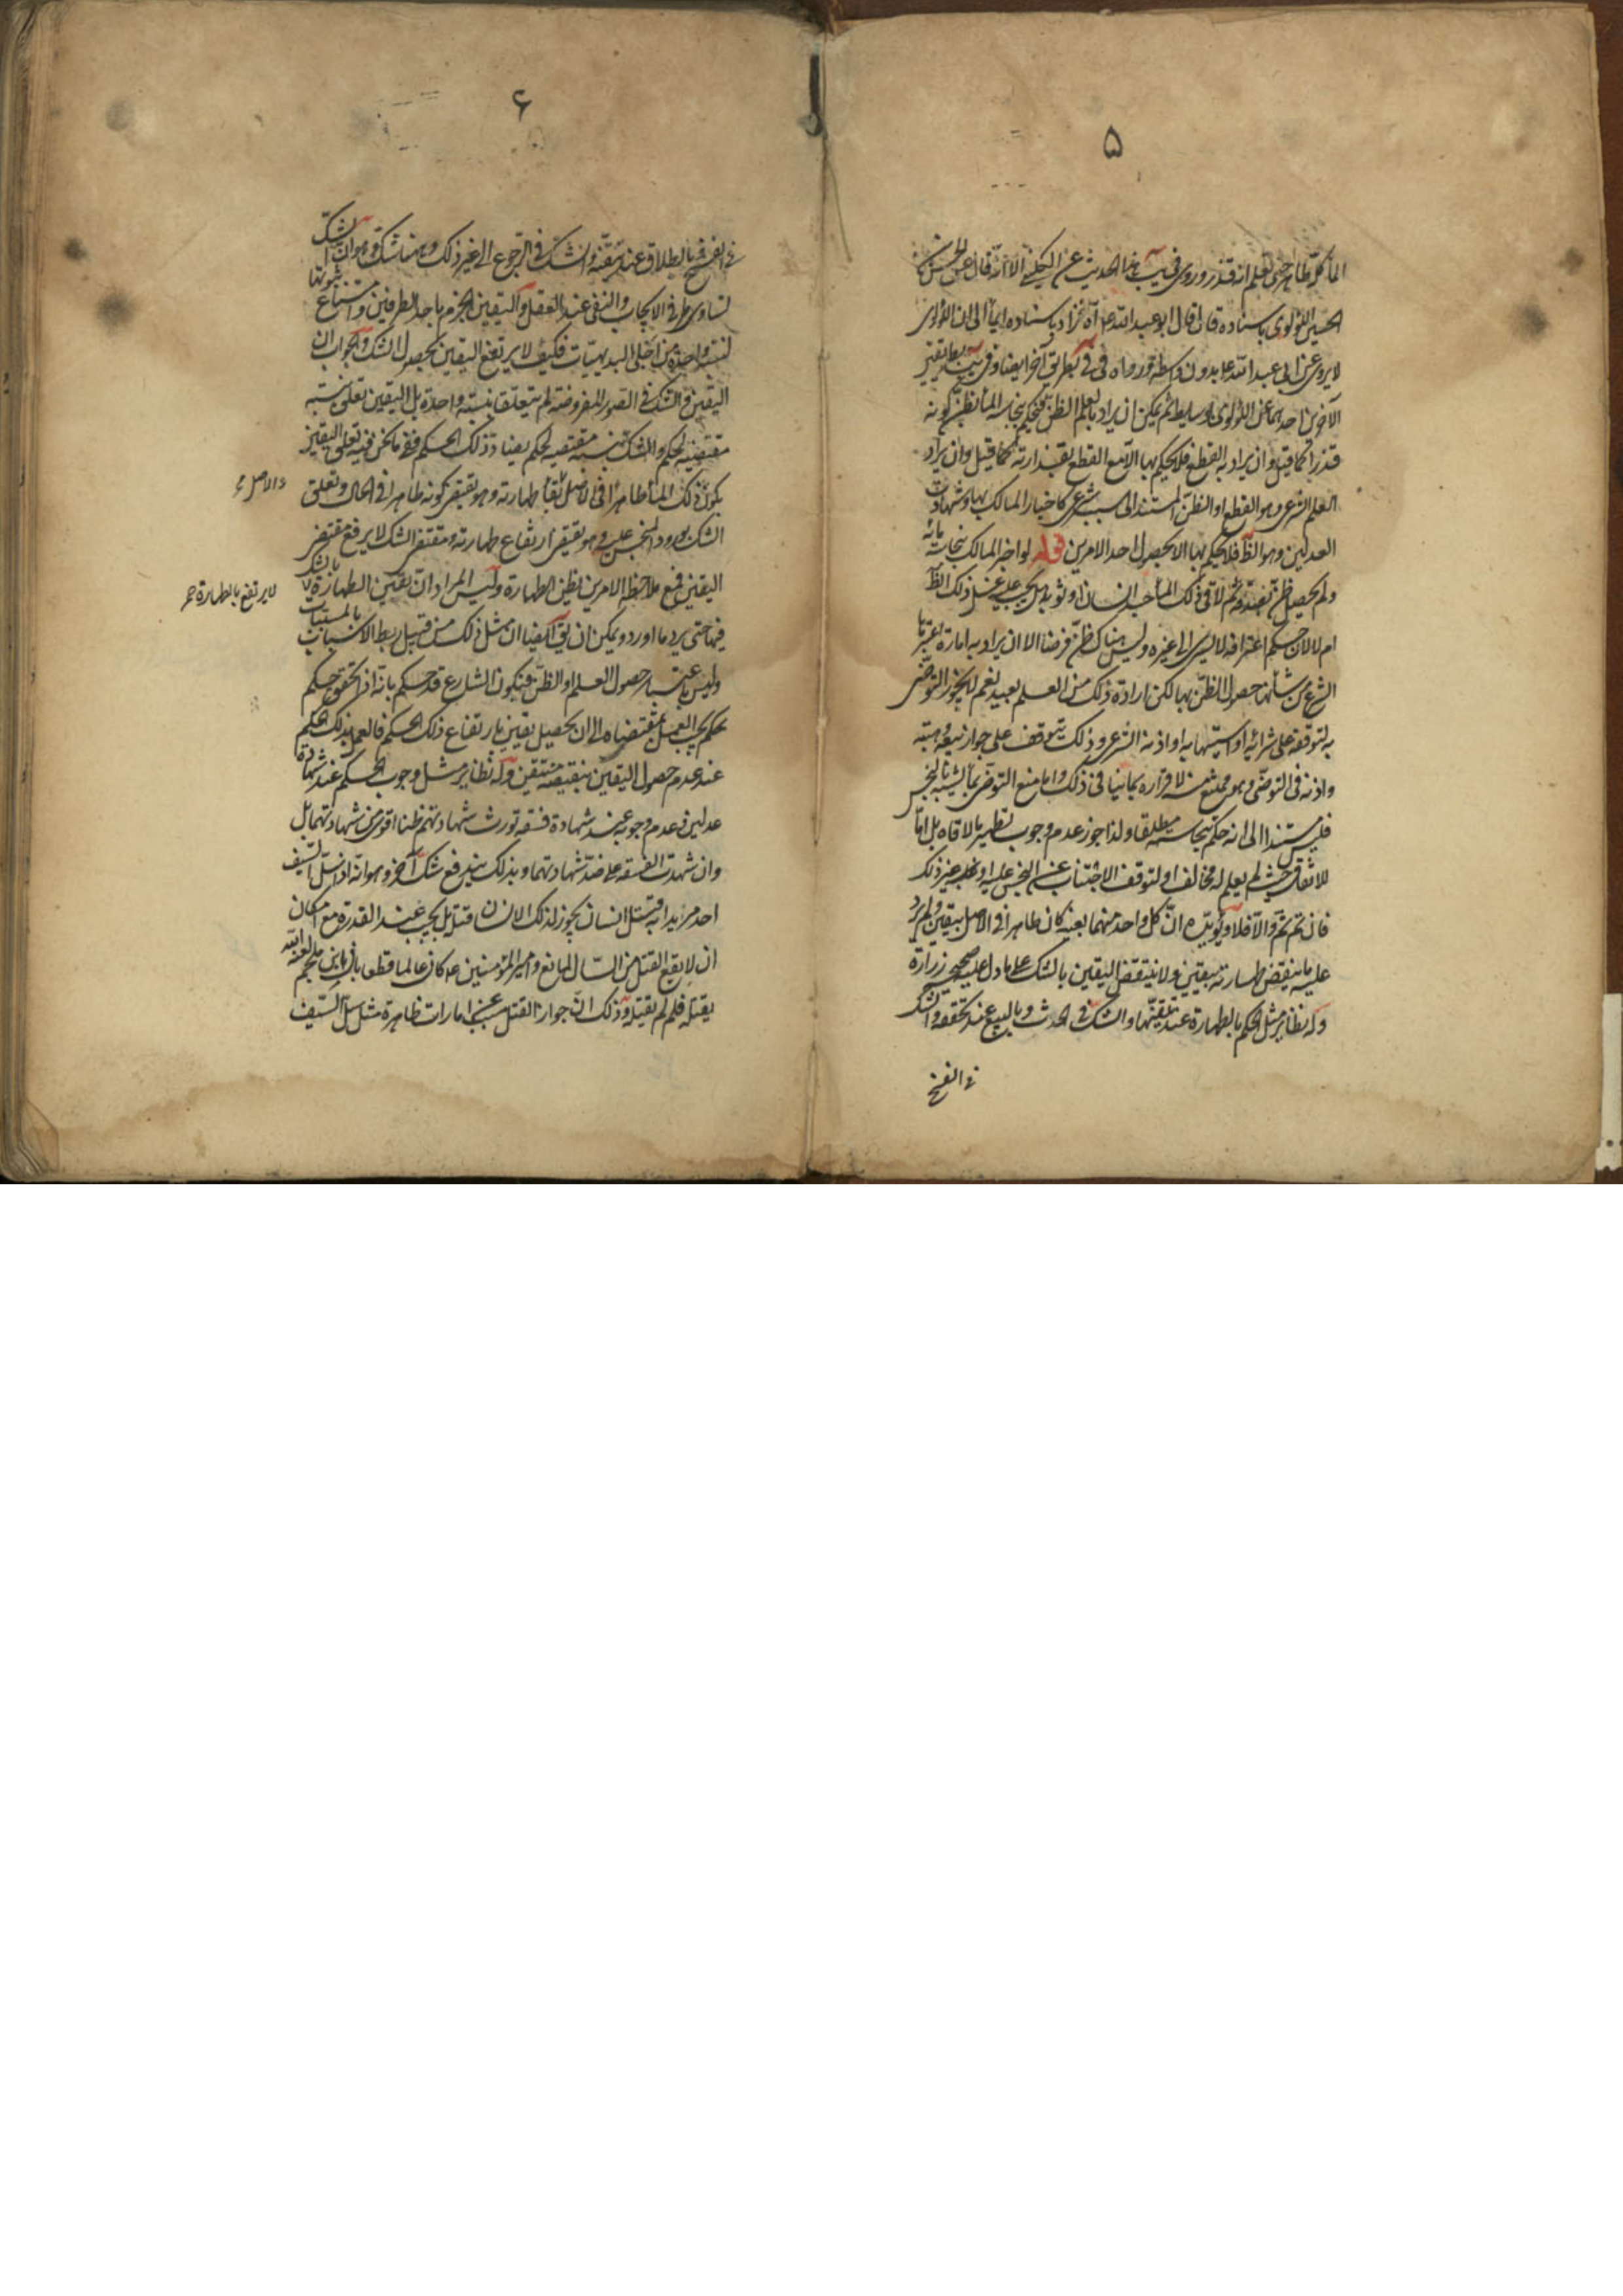 ۵
الماء كله طاهر حتى تعلم انه قذر وروى في يب هذا الحديث عن الكليني الا انه قال عن الحسن بن
الحسين اللؤلؤي باسناده قال قال ابو عبد الله ع آه فزاد باسناده ايماء الى ان اللؤلؤي
لا يروي عن ابي عبد الله ع بدون واسطة ورواه في في بطريق آخر ايضا وفي يب بطريقين
الآخرين احدهما عن اللؤلؤي وسايط ثم يمكن ان يراد بالعلم الظن فيحكم بنجاسة الماء بظن كونه
قذرا كما قيل وان يراد به القطع فلا يحكم بها الا مع القطع بقذارته كما قيل وان يراد
العلم الشرعي وهو القطع او الظن المستند الى سبب شرعي كاخبار المالك بها وشهادت
العدلين وهو الظ فلا يحكم بها الا بحصول احد الامرين قوله لو اخبر المالك بنجاسة مائه
ولم يحصل ظن بصدقه ثم لاقى ذلك الماء جسد انسان او ثوبه هل يجب عليه غسل ذلك الظ
ام لا لان حكم اعترافه لا يسري الى غيره وليس هناك ظن فرضنا الا ان يراد به امارة يعتبرها
الشرع من شأنها حصول الظن بها لكن ارادة ذلك من العلم بعيد نعم لا يجوز التوضى
به لتوقفه على شرائه او استيهابه او اذنه الشرعي وذلك يتوقف على جواز بيعه وهبته
واذنه في التوضى وهو ممتنع منه لاقراره بما ينافي ذلك واما منع التوضى بما يشتبه بالنجس
فليس مستندا الى انه حكم بنجاسته مطلقا ولذا جوز عدم وجوب تطهير ما لاقاه بل اما
للاتفاق حيث لم يعلم له مخالف او لتوقف الاجتناب عن النجس عليه او غير ذلك
فان تم تم والا فلا ويؤيده ان كل واحد منهما بعينه كان طاهرا في الاصل بيقين ولم يرد
عليه ما ينقض طهارته بيقين ولا ينتقض اليقين بالشك على ما دل عليه صحيح زرارة
وله نظاير مثل الحكم بالطهارة عند تيقنها والشك في الحدث وبالبيع عند تحققه والشك
في الفسخ
۶
في الفسخ وبالطلاق عند تيقنه والشك في الرجوع الى غير ذلك وههنا شك وهو ان الشك
تساوي طرفي الايجاب والنفي عند العقل واليقين الجزم باحد الطرفين وامتناع ثبوتها
لنسبة واحدة من اجلى البديهيات فكيف لا يرتفع اليقين بحصول الشك والجواب ان
اليقين والشك في الصور المفروضة لم يتعلقا بنسبة واحدة بل اليقين تعلق بنسبة
مقتضية لحكم والشك بنسبة مقتضيه لحكم يضاد ذلك الحكم ففي ما نحن فيه تعلق اليقين
بكون ذلك الماء طاهرا في الاصل بقاء طهارته وهو يقتضي كونه طاهرا في الحال وتعلق
الشك بورود النجس عليه وهو يقتضي ارتفاع طهارته ومقتضى الشك لا يرفع مقتضى
اليقين فمع ملاحظة الامرين يظن الطهارة وليس المراد ان يقين الطهارة لا بالشك
فيها حتى يرد ما اورد ويمكن ان يق ايضا ان مثل ذلك من قبيل ربط الاسباب بالمسببات
وليس باعتبار حصول العلم او الظن فيكون الشارع قد حكم بانه اذا تحقق حكم
بحكم يجب العمل بمقتضاه الى ان يحصل يقين بارتفاع ذلك الحكم فالعمل بذلك الحكم
عند عدم حصول اليقين بنقيضه متيقن وله نظاير مثل وجوب الحكم عند شهادة
عدلين وعدم وجوبه عند شهادة فسقه تورث شهادتهم ظنا اقوى من شهادتهما بل
وان شهدت الفسقه على ضد شهادتهما وبذلك يندفع شك آخر وهو انه اذا سل السيف
احد مريدا به قتل انسان يجوز لذلك الانسان قتله بل يجب عند القدرة مع امكان
ان لا يقع القتل من السال لمانع وامير المؤمنين ع كان عالما قطعا بان ابن ملجم لعنه الله
يقتله فلم لم يقتله وذلك ان جواز القتل سبب امارات ظاهرة مثل سل السيف
لا يرتفع بالطهارة